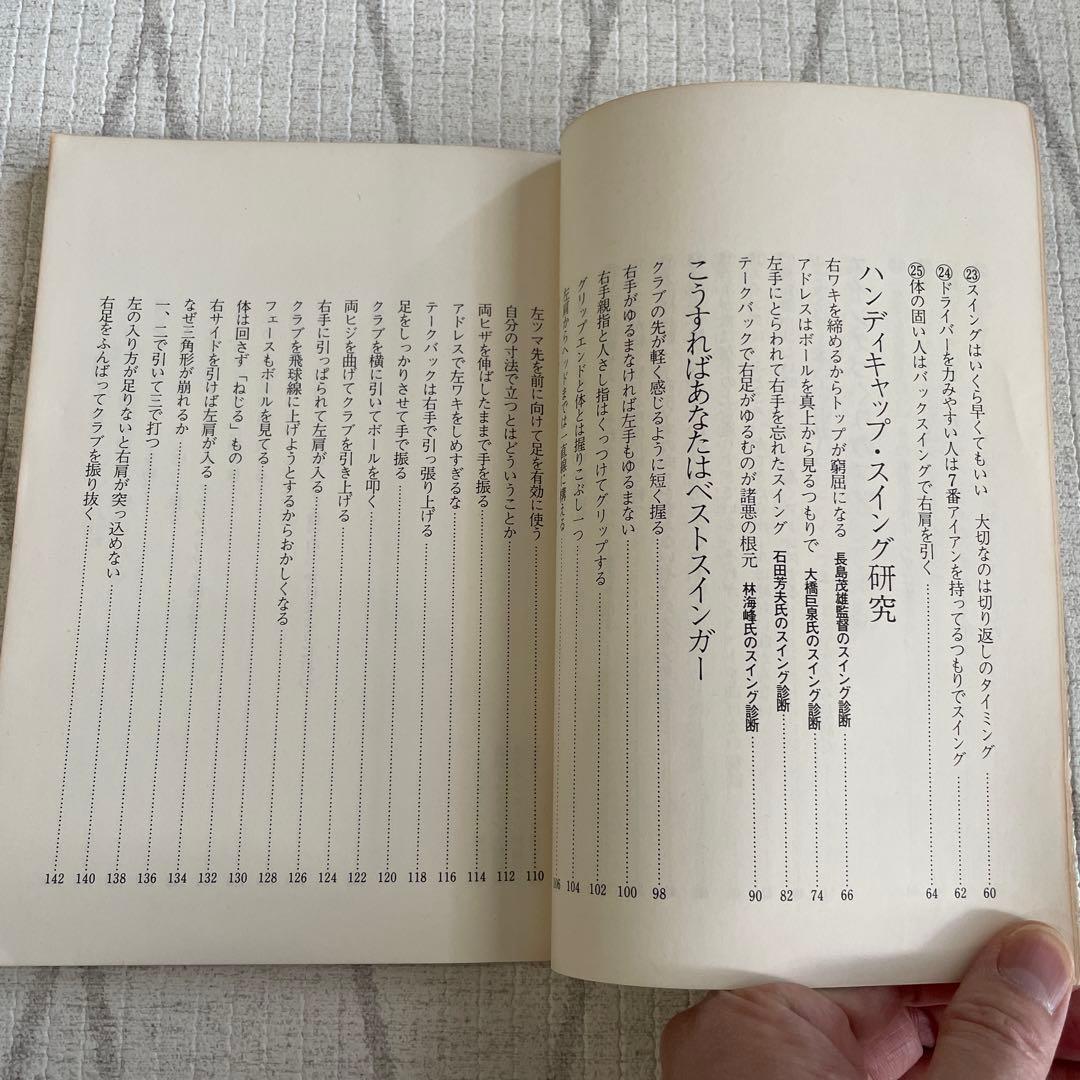 ㉓スイングはいくら早くてもいい　大切なのは切り返しのタイミング 60
㉔ドライバーを力みやすい人は7番アイアンを持ってるつもりでスイング 62
㉕体の固い人はバックスイングで右肩を引く 64
ハンディキャップ・スイング研究
右ワキを締めるからトップが窮屈になる　長島茂雄監督のスイング診断 66
アドレスはボールを真上から見るつもりで　大橋巨泉氏のスイング診断 74
左手にとらわれて右手を忘れたスイング　石田芳夫氏のスイング診断 82
テークバックで右足がゆるむのが諸悪の根元　林海峰氏のスイング診断 90
こうすればあなたはベストスインガー
クラブの先が軽く感じるように短く握る 98
右手がゆるまなければ左手もゆるまない 100
右手親指と人さし指はくっつけてグリップする 102
グリップエンドと体とは握りこぶし一つ 104
左肩からヘッドまでは一直線に構える 106
左ツマ先を前に向けて足を有効に使う 110
自分の寸法で立つとはどういうことか 112
両ヒザを伸ばしたままで手を振る 114
アドレスで左ワキをしめすぎるな 116
テークバックは右手で引っ張り上げる 118
足をしっかりさせて手で振る 120
クラブを横に引いてボールを叩く 122
両ヒジを曲げてクラブを引き上げる 124
右手に引っぱられて左肩が入る 126
クラブを飛球線に上げようとするからおかしくなる 128
フェースもボールを見てる 130
体は回さず「ねじる」もの 132
右サイドを引けば左肩が入る 134
なぜ三角形が崩れるか 136
一、二で引いて三で打つ 138
左の入り方が足りないと右肩が突っ込めない 140
右足をふんばってクラブを振り抜く 142